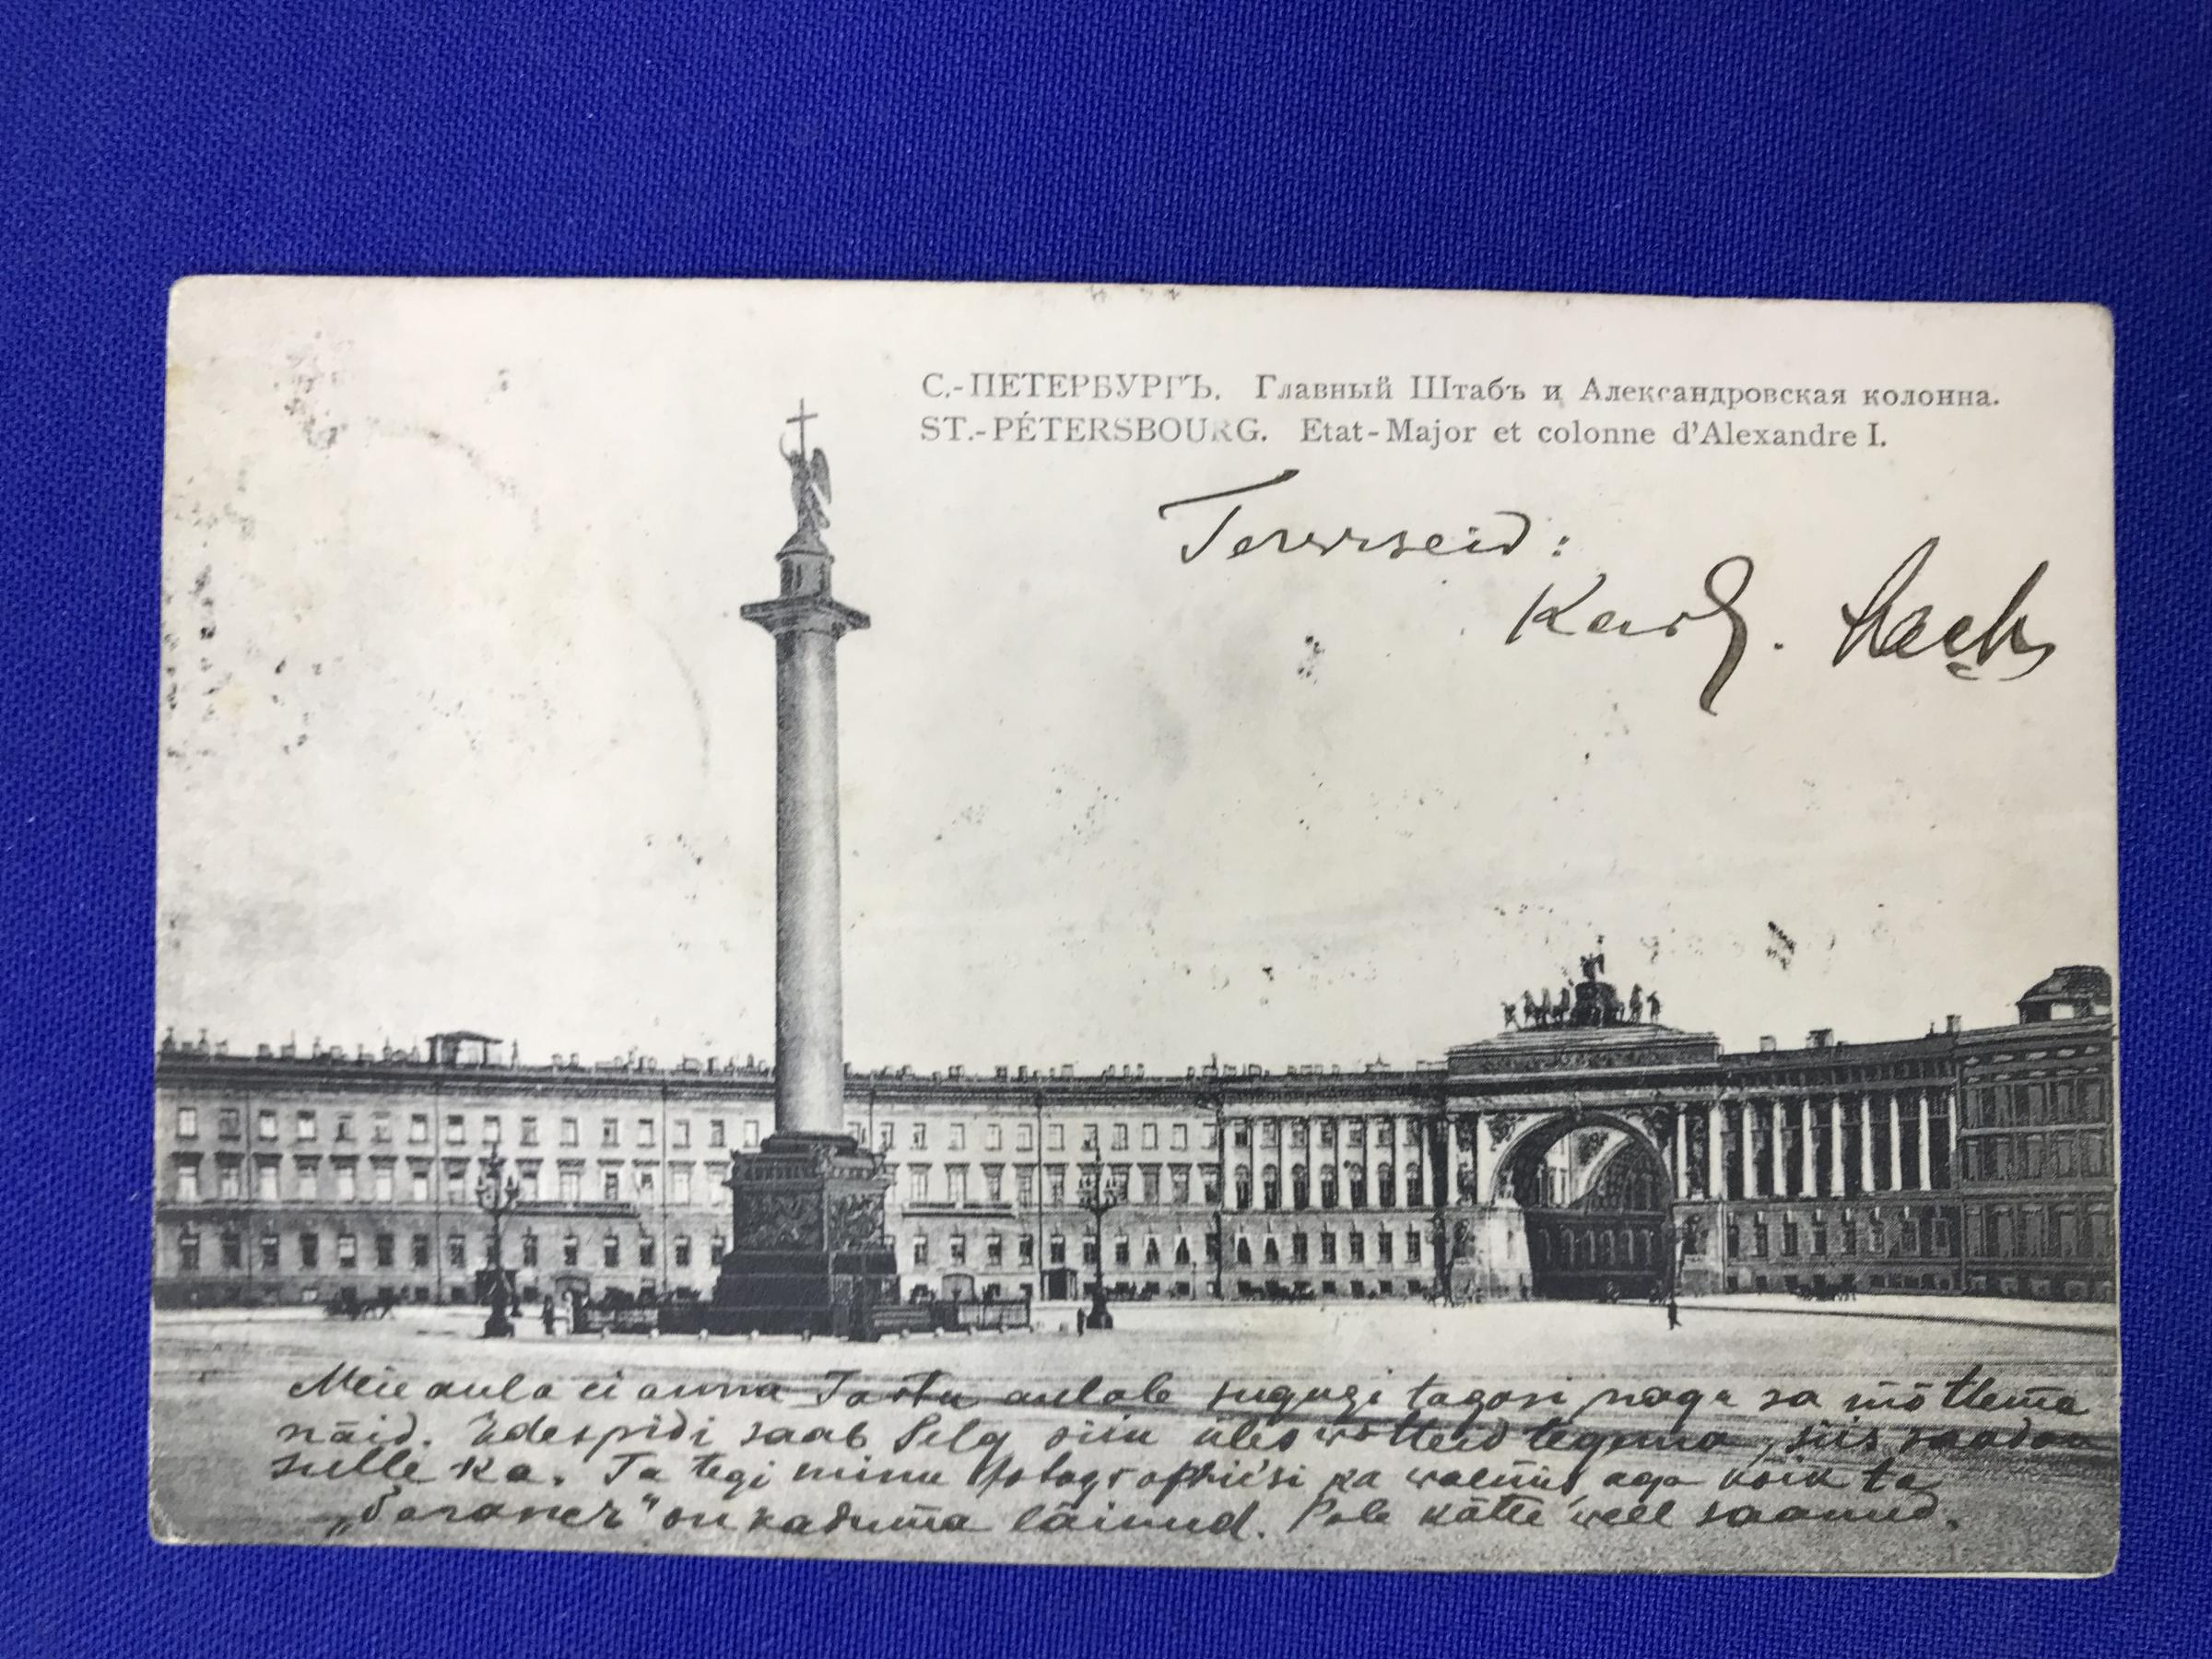 С.-ПЕТЕРБУРГЪ. Главный Штабъ и Александровская колонна.
ST.-PÉTERSBOURG. Etat-Major et colonne d'Alexandre I.
Terwiseid:
Karl.
Meie aula ei anna Tartu aulale sugugi tagasi, nagu sa mõtlema
näid. Edespidi saab Selg siin ülesvõtteid tegema, siis saadan
sulle ka. Ta tegi minu fotographie'si ka valmis, aga kõik ta
on kaduma läinud. Pole kätte veel saanud.